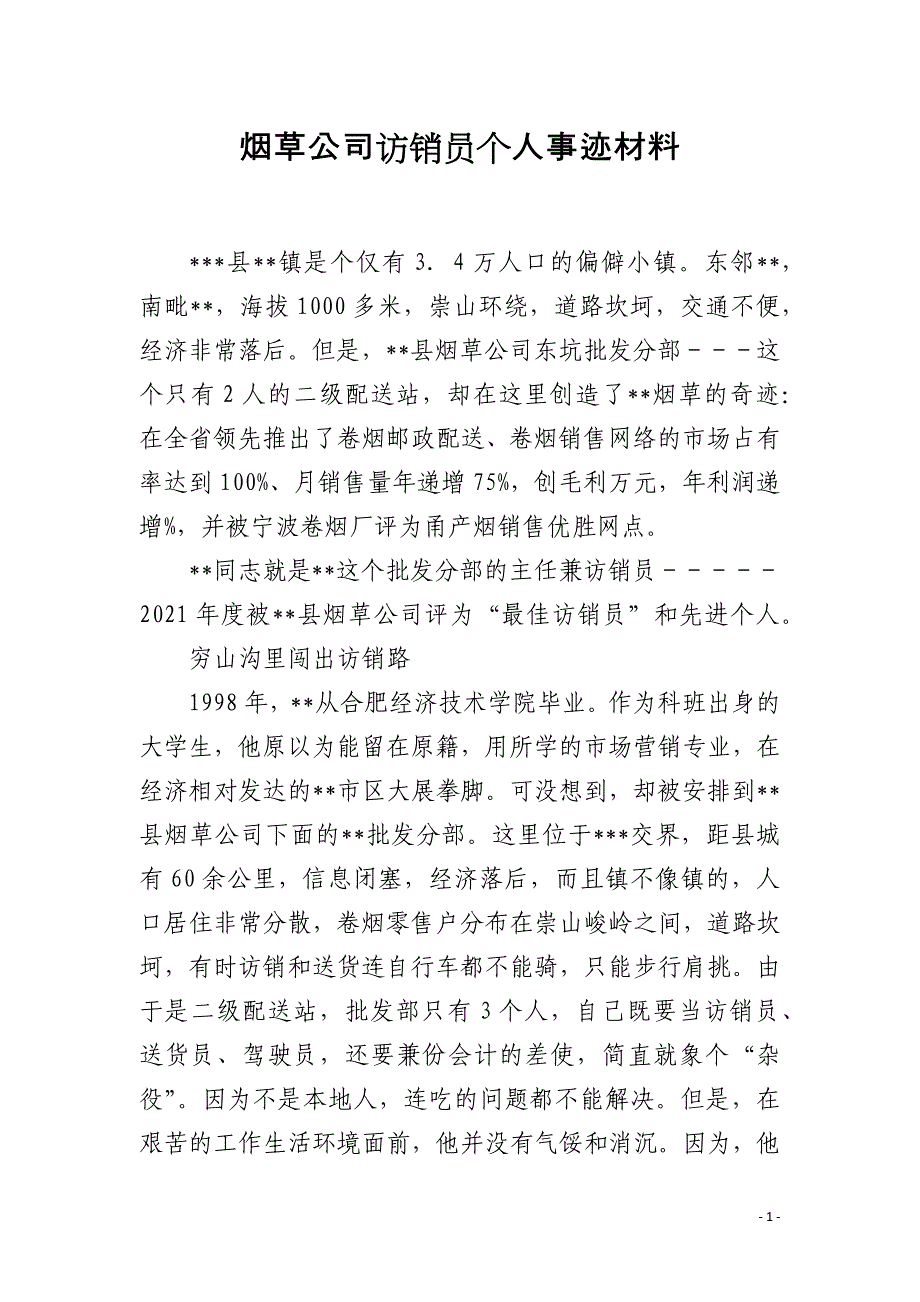 烟草公司访销员个人事迹材料
***县**镇是个仅有 3．4 万人口的偏僻小镇。东邻**，
南毗**，海拔 1000 多米，崇山环绕，道路坎坷，交通不便，
经济非常落后。但是，**县烟草公司东坑批发分部---这
个只有 2 人的二级配送站，却在这里创造了**烟草的奇迹：
在全省领先推出了卷烟邮政配送、卷烟销售网络的市场占有
率达到 100%、月销售量年递增 75%，创毛利万元，年利润递
增%，并被宁波卷烟厂评为甬产烟销售优胜网点。
**同志就是**这个批发分部的主任兼访销员-----
2021 年度被**县烟草公司评为“最佳访销员”和先进个人。
穷山沟里闯出访销路
1998 年，**从合肥经济技术学院毕业。作为科班出身的
大学生，他原以为能留在原籍，用所学的市场营销专业，在
经济相对发达的**市区大展拳脚。可没想到，却被安排到**
县烟草公司下面的**批发分部。这里位于***交界，距县城
有 60 余公里，信息闭塞，经济落后，而且镇不像镇的，人
口居住非常分散，卷烟零售户分布在崇山峻岭之间，道路坎
坷，有时访销和送货连自行车都不能骑，只能步行肩挑。由
于是二级配送站，批发部只有 3 个人，自己既要当访销员、
送货员、驾驶员，还要兼份会计的差使，简直就象个“杂
役”。因为不是本地人，连吃的问题都不能解决。但是，在
艰苦的工作生活环境面前，他并没有气馁和消沉。因为，他
- 1 -